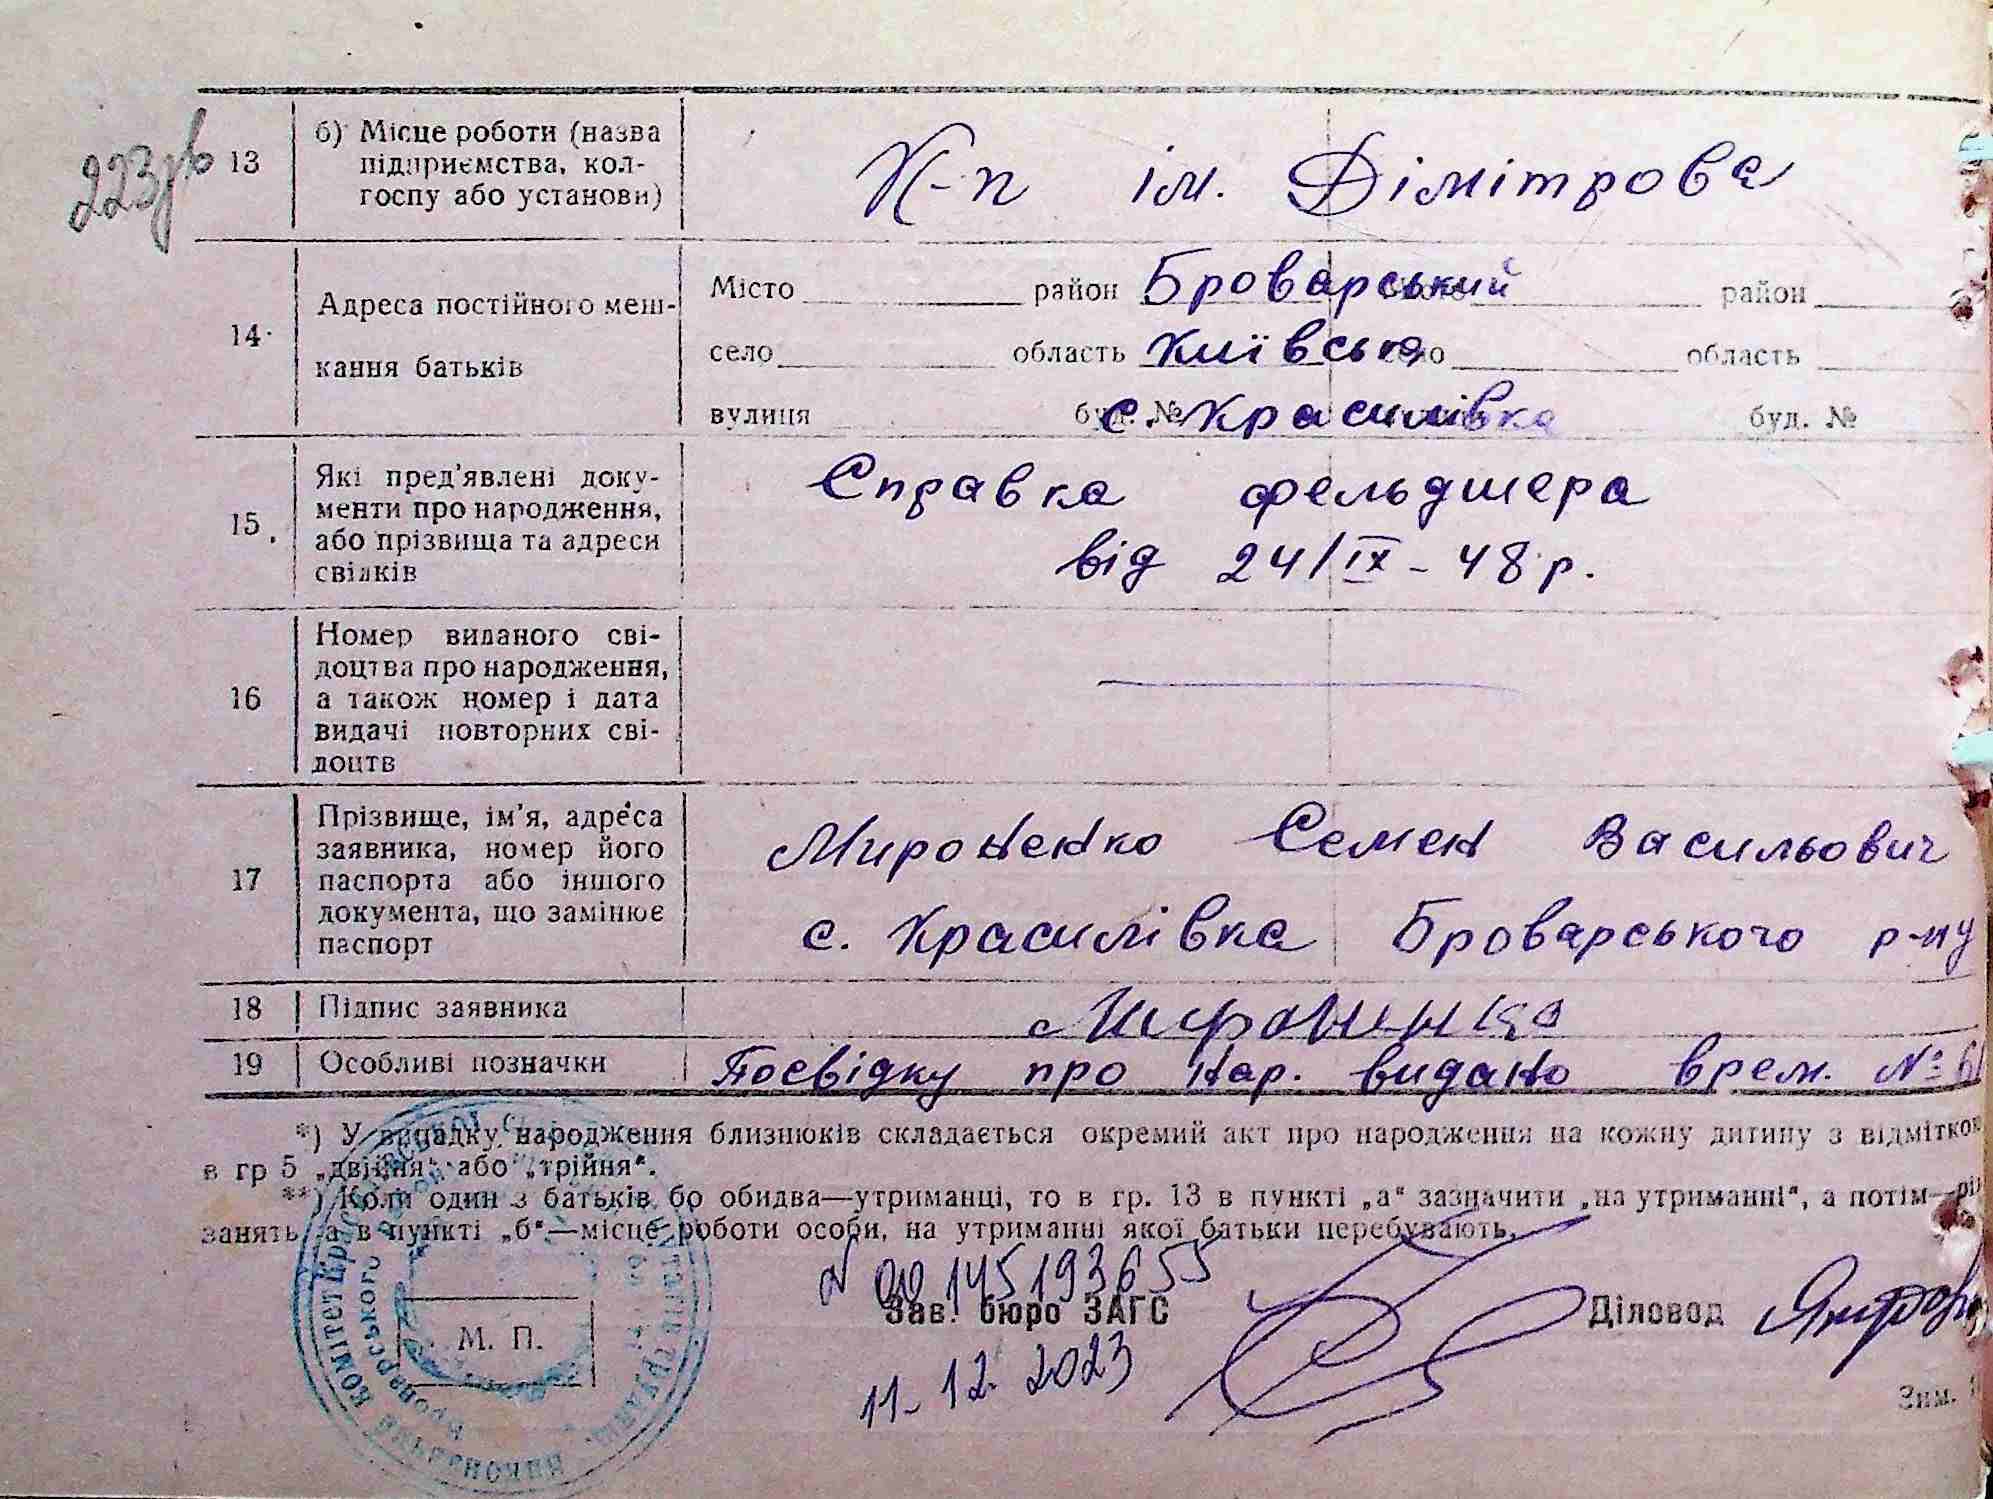 223зв
13 б) Місце роботи (назва
підприємства, кол-
госпу або установи)
К-п ім. Дімітрова
14 Адреса постійного меш-
кання батьків
Місто район Броварський район
село область Київська село область
вулиця буд. № с. Красилівка буд. №
15. Які пред'явлені доку-
менти про народження,
або прізвища та адреси
свідків
Справка фельдшера
від 24/IX - 48 р.
16 Номер виданого сві-
доцтва про народження,
а також номер і дата
видачі повторних сві-
доцтв
17 Прізвище, ім'я, адреса
заявника, номер його
паспорта або іншого
документа, що замінює
паспорт
Мироненко Семен Васильович
с. Красилівка Броварського р-ну
18 Підпис заявника
Миронинко
19 Особливі позначки
Посвідку про нар. видано врем. №
*) У випадку народження близнюків складається окремий акт про народження на кожну дитину з відміткою
в гр 5 „двійня“ або „трійня“.
**) Коли один з батьків бо обидва—утриманці, то в гр. 13 в пункті „а“ зазначити „на утриманні“, а потім—рід
занять, а в пункті „б“—місце роботи особи, на утриманні якої батьки перебувають.
N 00145193655
Зав. бюро ЗАГС Діловод
М. П.
11.12.2023
Зам.